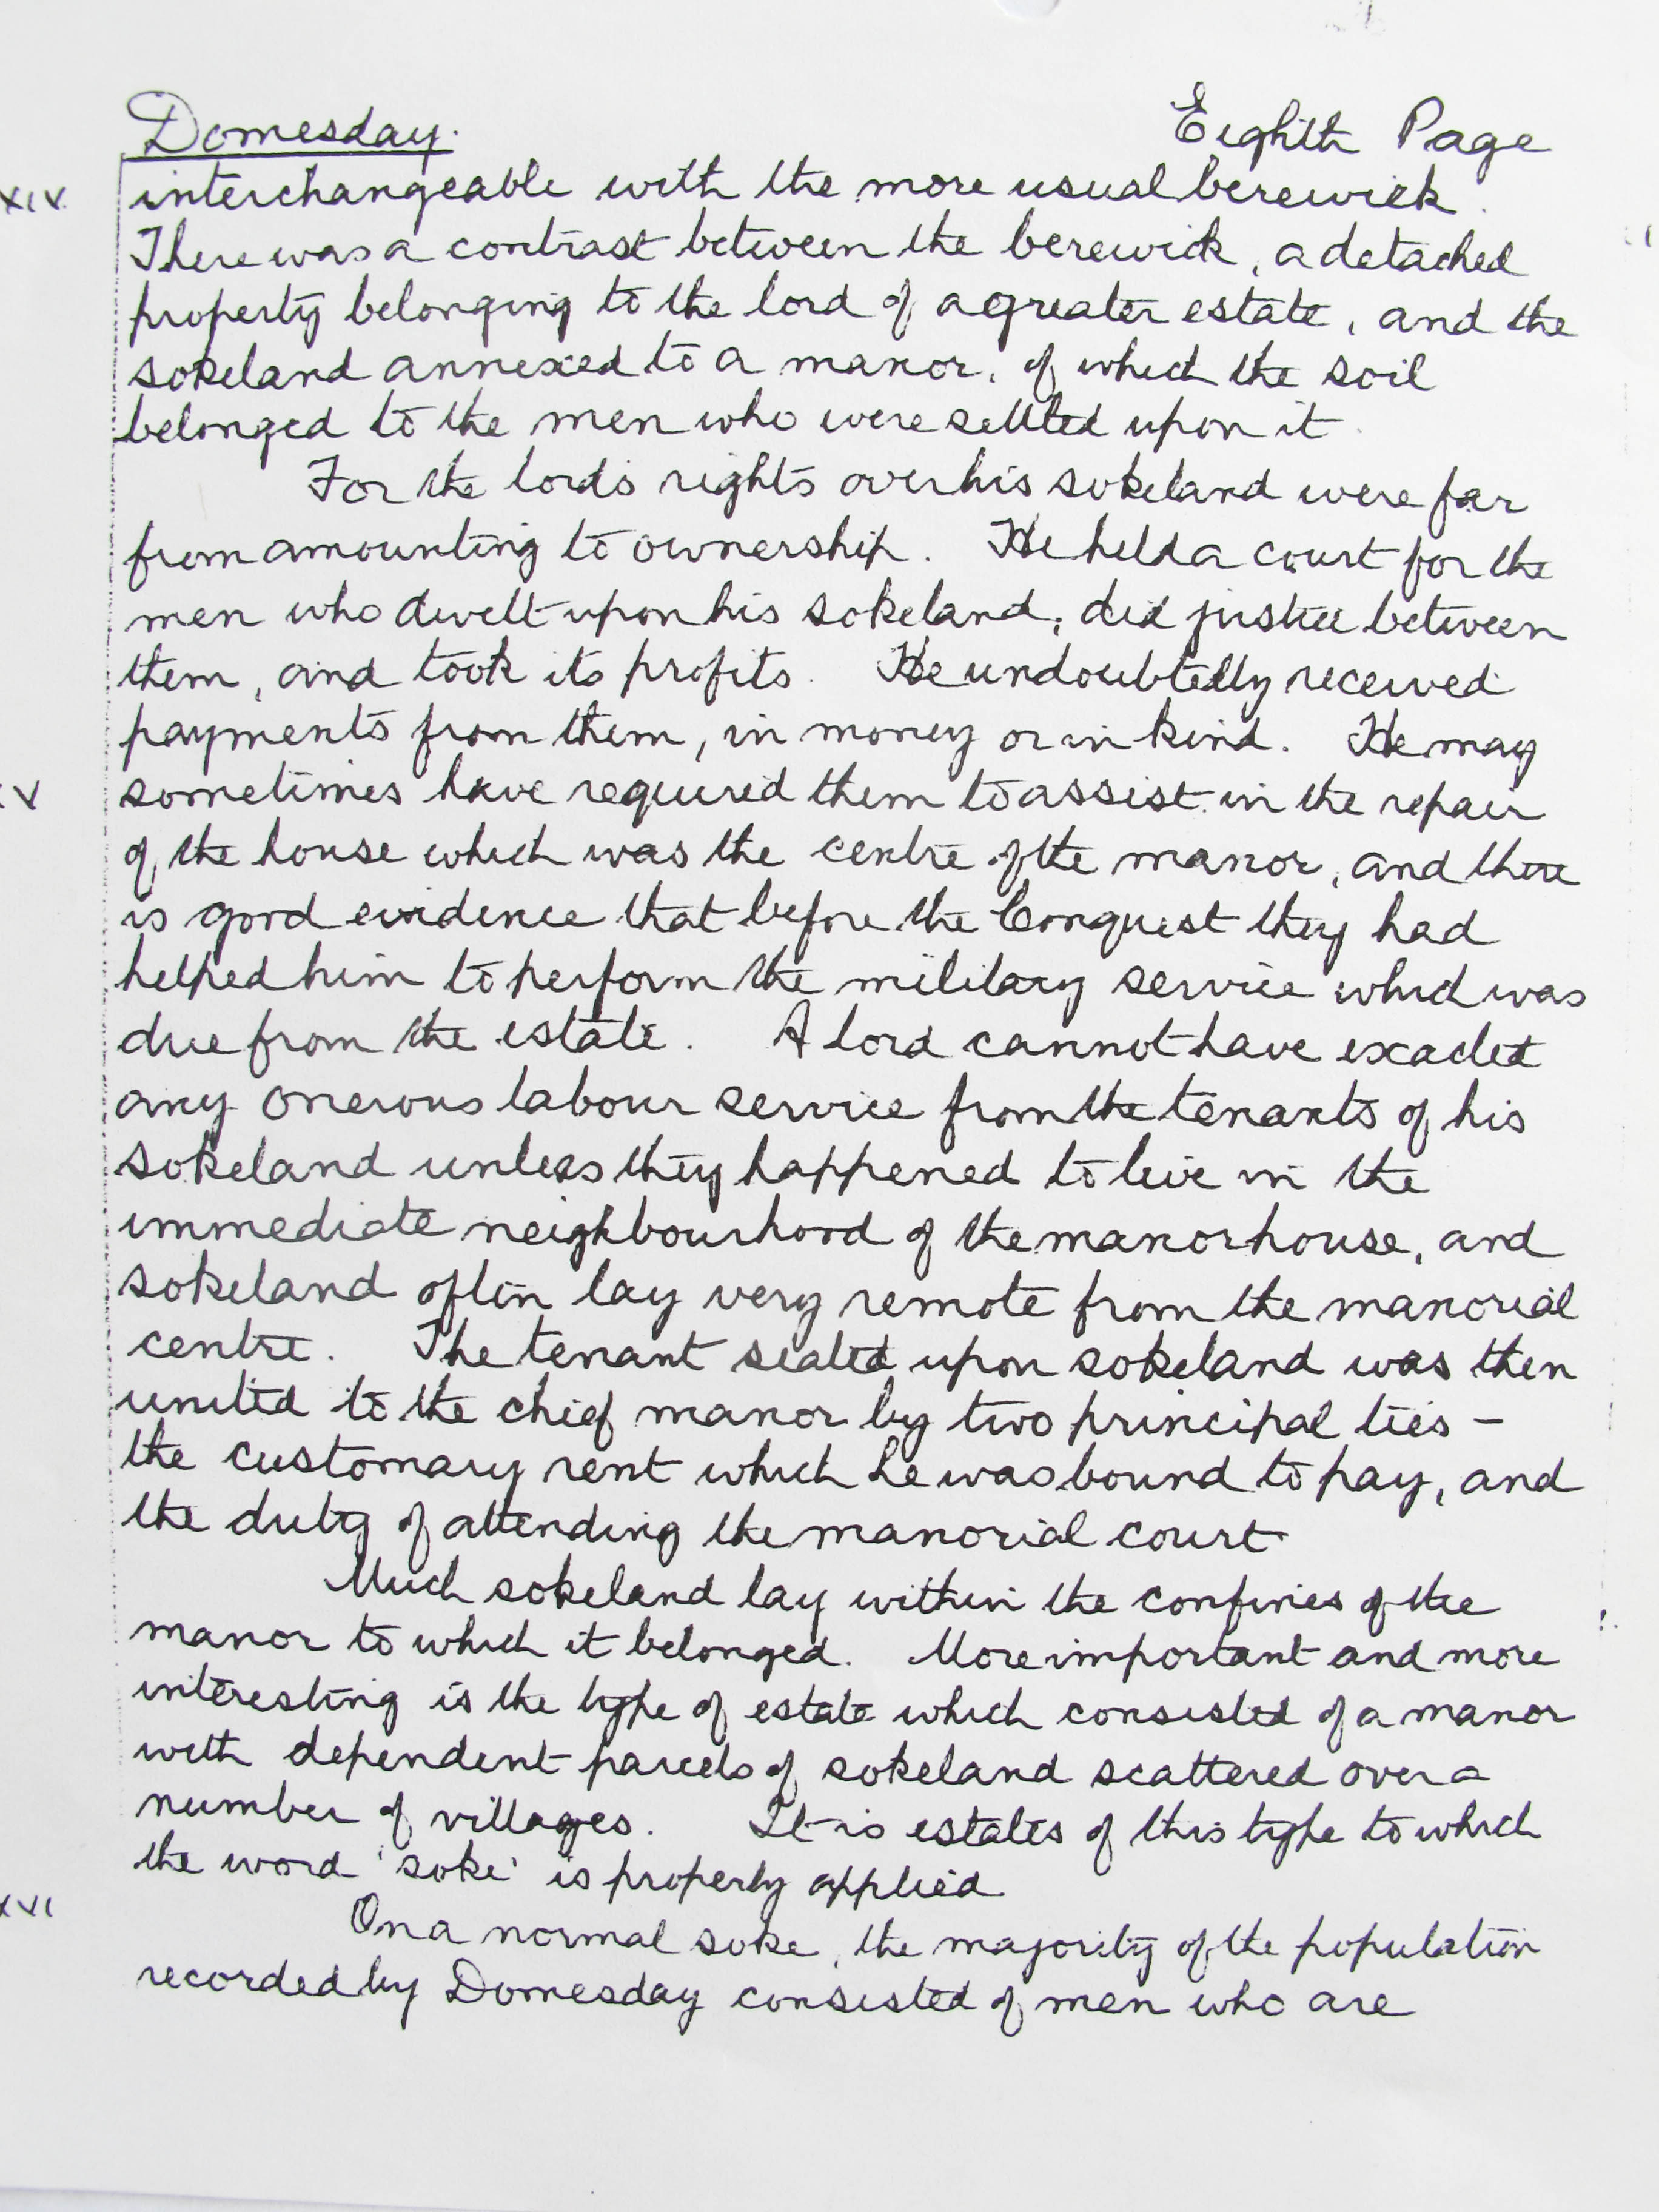 Domesday. Eighth Page
XIV. interchangeable with the more usual berewick.
There was a contrast between the berewick, a detached
property belonging to the lord of a greater estate, and the
sokeland annexed to a manor, of which the soil
belonged to the men who were settled upon it.
For the lord's rights over his sokeland were far
from amounting to ownership. He held a court for the
men who dwelt upon his sokeland, did justice between
them, and took its profits. He undoubtedly received
payments from them, in money or in kind. He may
XV sometimes have required them to assist in the repair
of the house which was the centre of the manor, and there
is good evidence that before the Conquest they had
helped him to perform the military service which was
due from the estate. A lord cannot have exacted
any onerous labour service from the tenants of his
sokeland unless they happened to live in the
immediate neighbourhood of the manor house, and
sokeland often lay very remote from the manorial
centre. The tenant seated upon sokeland was then
united to the chief manor by two principal ties -
the customary rent which he was bound to pay, and
the duty of attending the manorial court
Much sokeland lay within the confines of the
manor to which it belonged. More important and more
interesting is the type of estate which consisted of a manor
with dependent parcels of sokeland scattered over a
number of villages. It is estates of this type to which
the word 'soke' is properly applied
XVI On a normal soke, the majority of the population
recorded by Domesday consisted of men who are